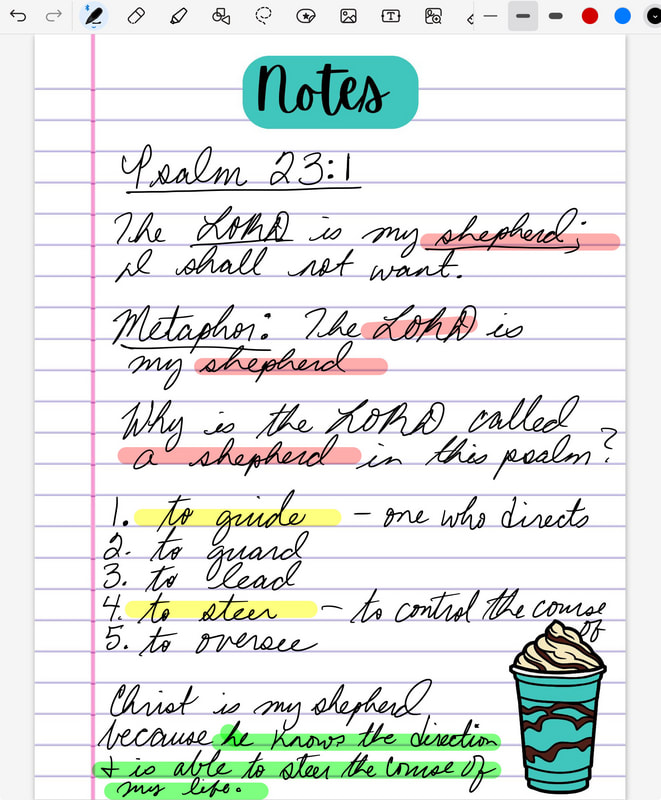 Notes
Psalm 23:1
The LORD is my shepherd;
I shall not want.
Metaphor: The LORD is
my shepherd
Why is the LORD called
a shepherd in this psalm?
1. to guide - one who directs
2. to guard
3. to lead
4. to steer - to control the course
of
5. to oversee
Christ is my shepherd
because he knows the direction
& is able to steer the course of
my life.